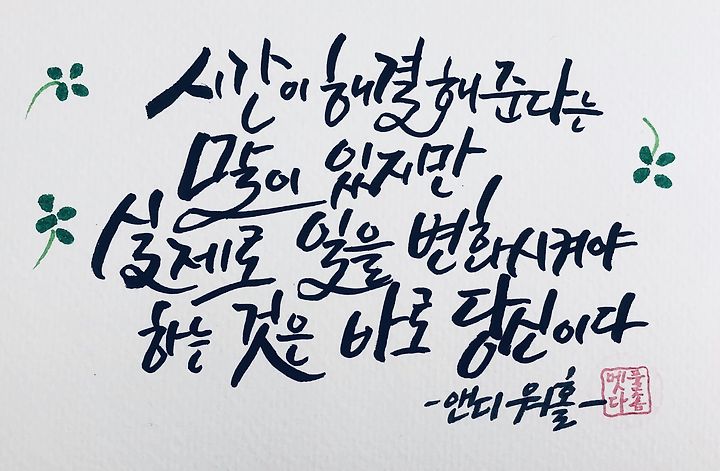 시간이 해결해 준다는
말이 있지만
실제로 일을 변화시켜야
하는 것은 바로 당신이다
-앤디 워홀-